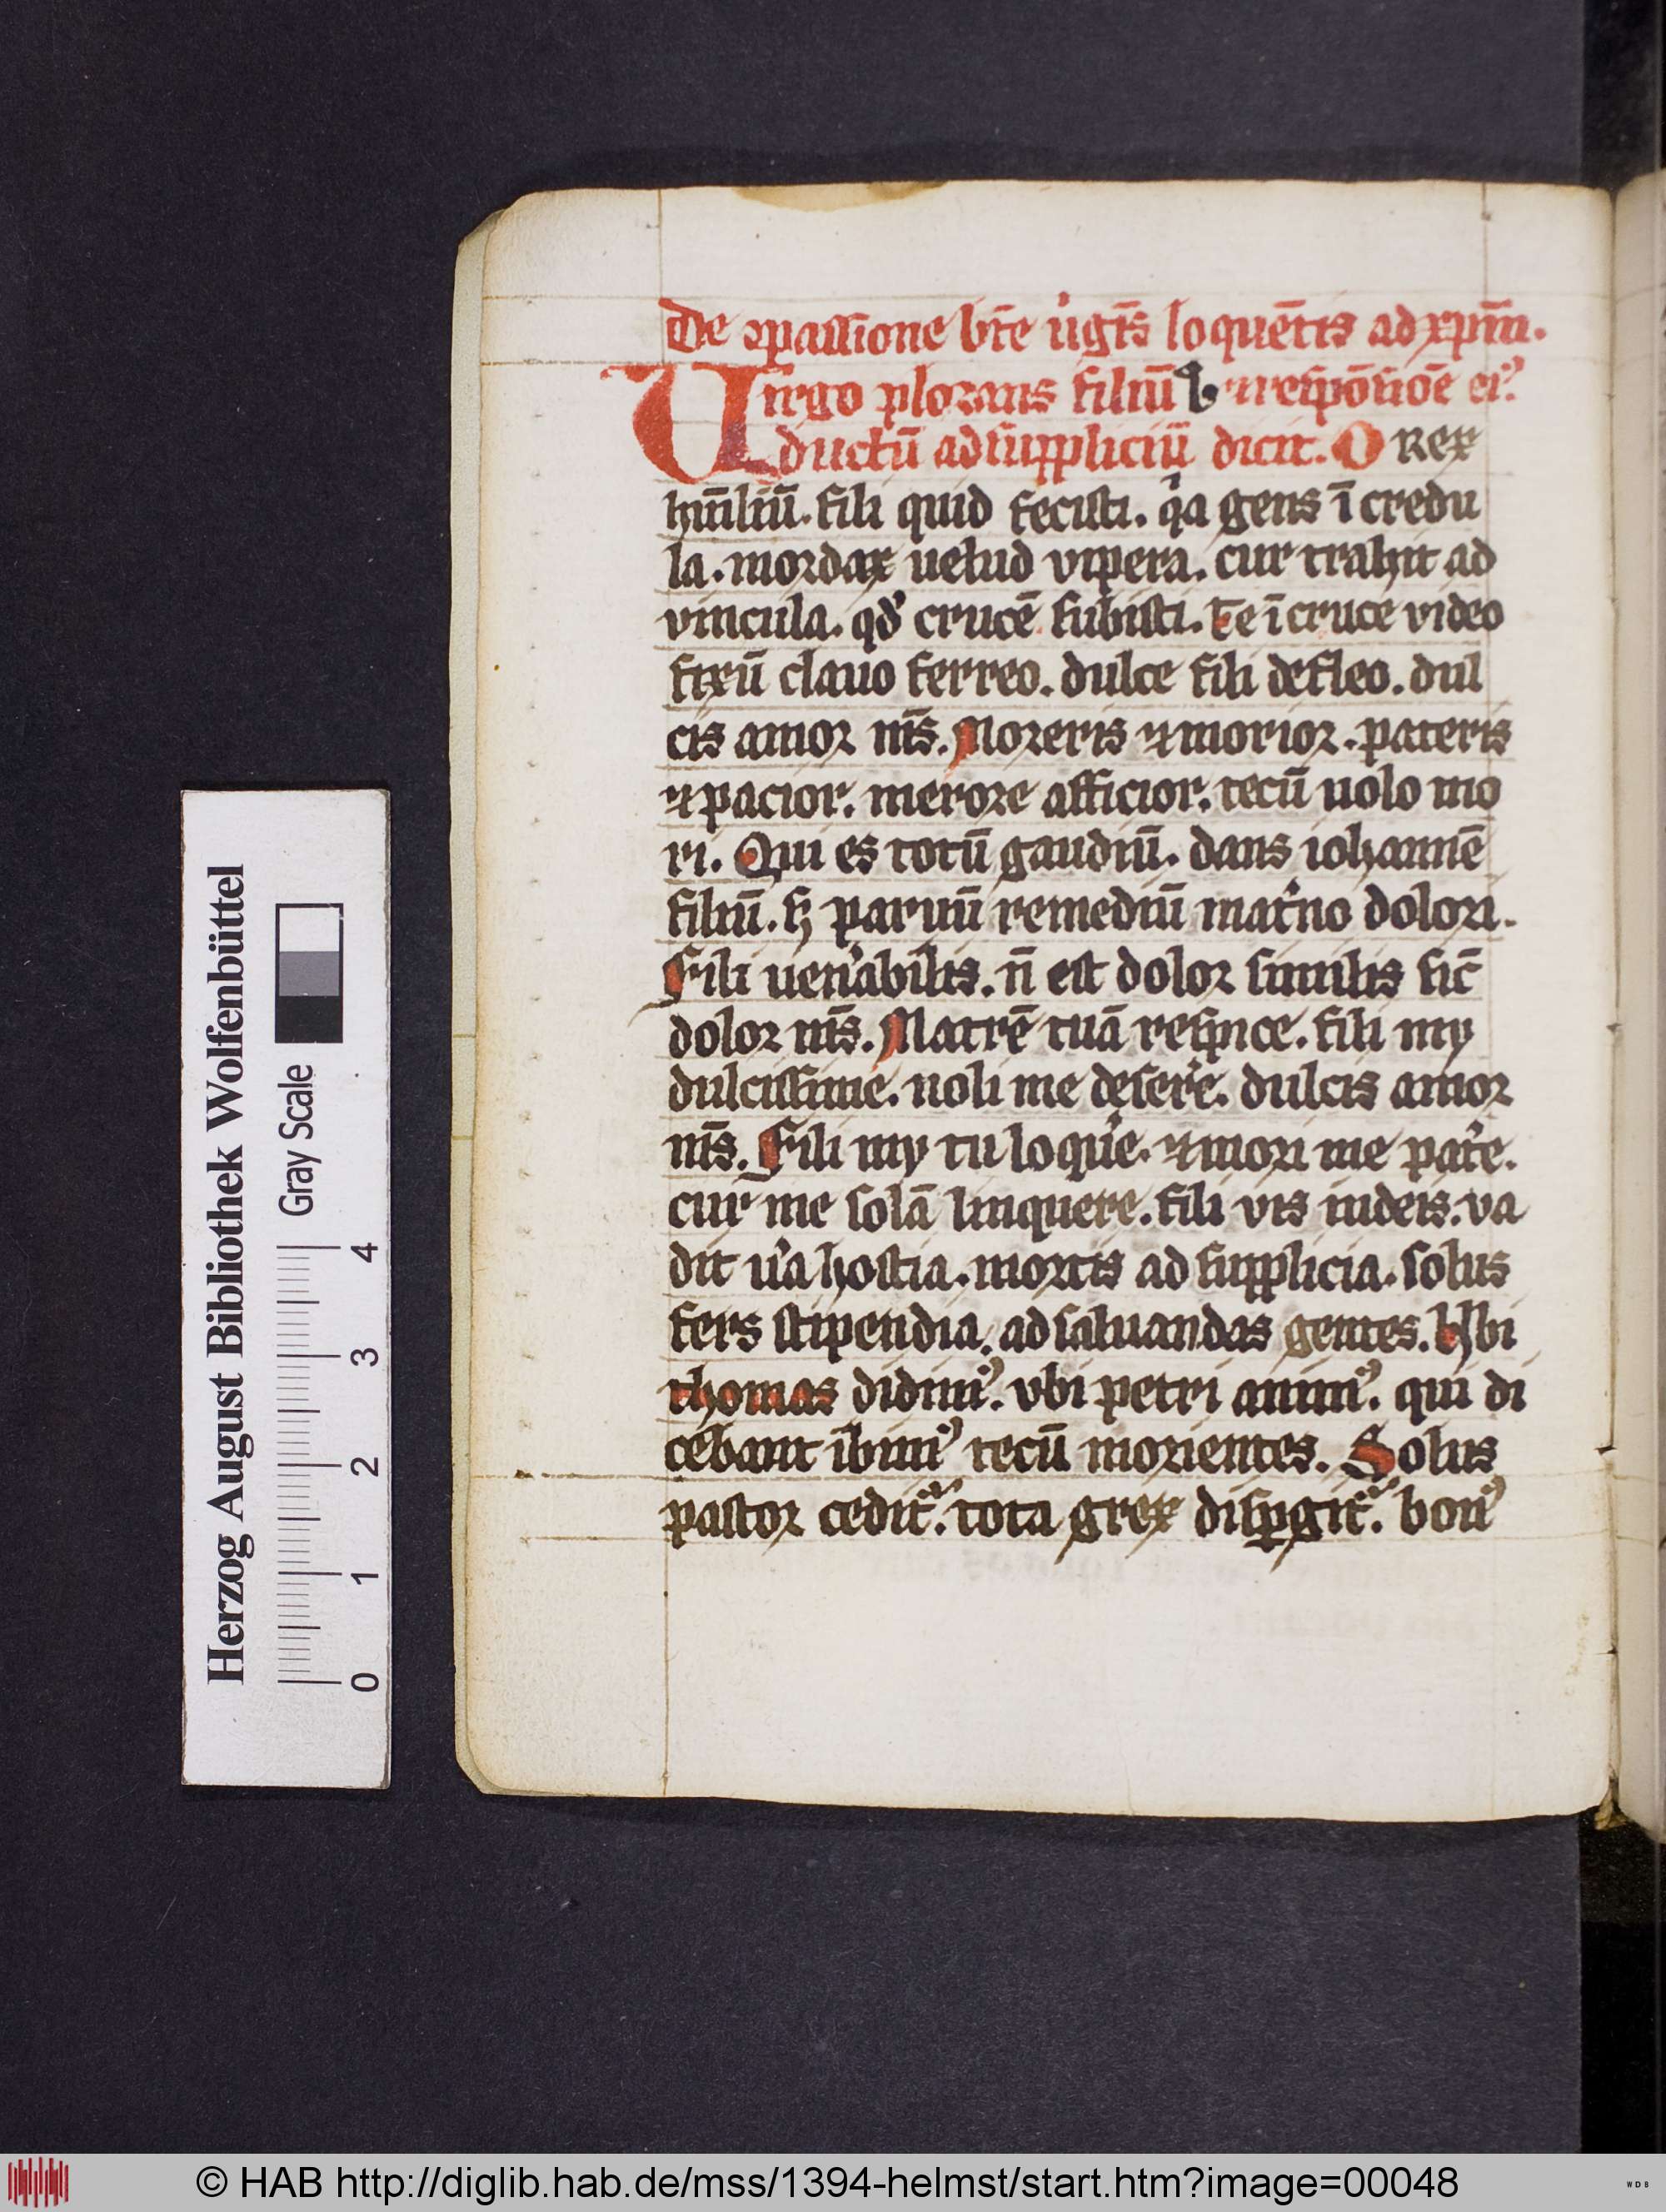 De ꝯpassione bt̄e v'gīs loquētis ad xp̄m.
Virgo plorans filiū b ⁊ respōsiōe eiꝰ
ductū ad suppliciū dicit. O Rex
hūiliū. fili quid fecisti. qͥa gens ī credu
la. mordax velud vipera. cur trahit ad
vincula. qd' crucē subisti. Te ī cruce video
fixū clauo ferreo. dulce fili defleo. dul
cis amor m̄s. Moreris ⁊ morior. pateris
⁊ pacior. merore afficior. tecū uolo mo
ri. Qui es totū gaudiū. dans iohannē
filiū. h̓ paruū remediū mat'no dolori.
Fili uen'abilis. n̄ est dolor similis sic̄
dolor m̄s. Matrē tuā respice. fili my
dulcissime. noli me deser'e. dulcis amor
m̄s. Fili my tu loqu'e. ⁊ mori me pat'e.
cur me solā linquere. fili vis iudeis. va
dit u'a hostia. mortis ad supplicia. solus
fers stipendia. ad saluandas gentes. Vbi
thomas didimꝰ. vbi petri animꝰ. qui di
cebant ibimꝰ tecū morientes. Solus
pastor cedit᷑. tota grex disꝑgit᷑. bonꝰ
Herzog August Bibliothek Wolfenbüttel
Gray Scale
0 1 2 3 4
© HAB http://diglib.hab.de/mss/1394-helmst/start.htm?image=00048
WDB